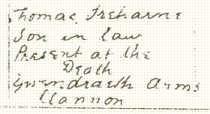 Thomas Treharne
Son in law
Present at the
Death
Gwendraeth Arms
Llannon